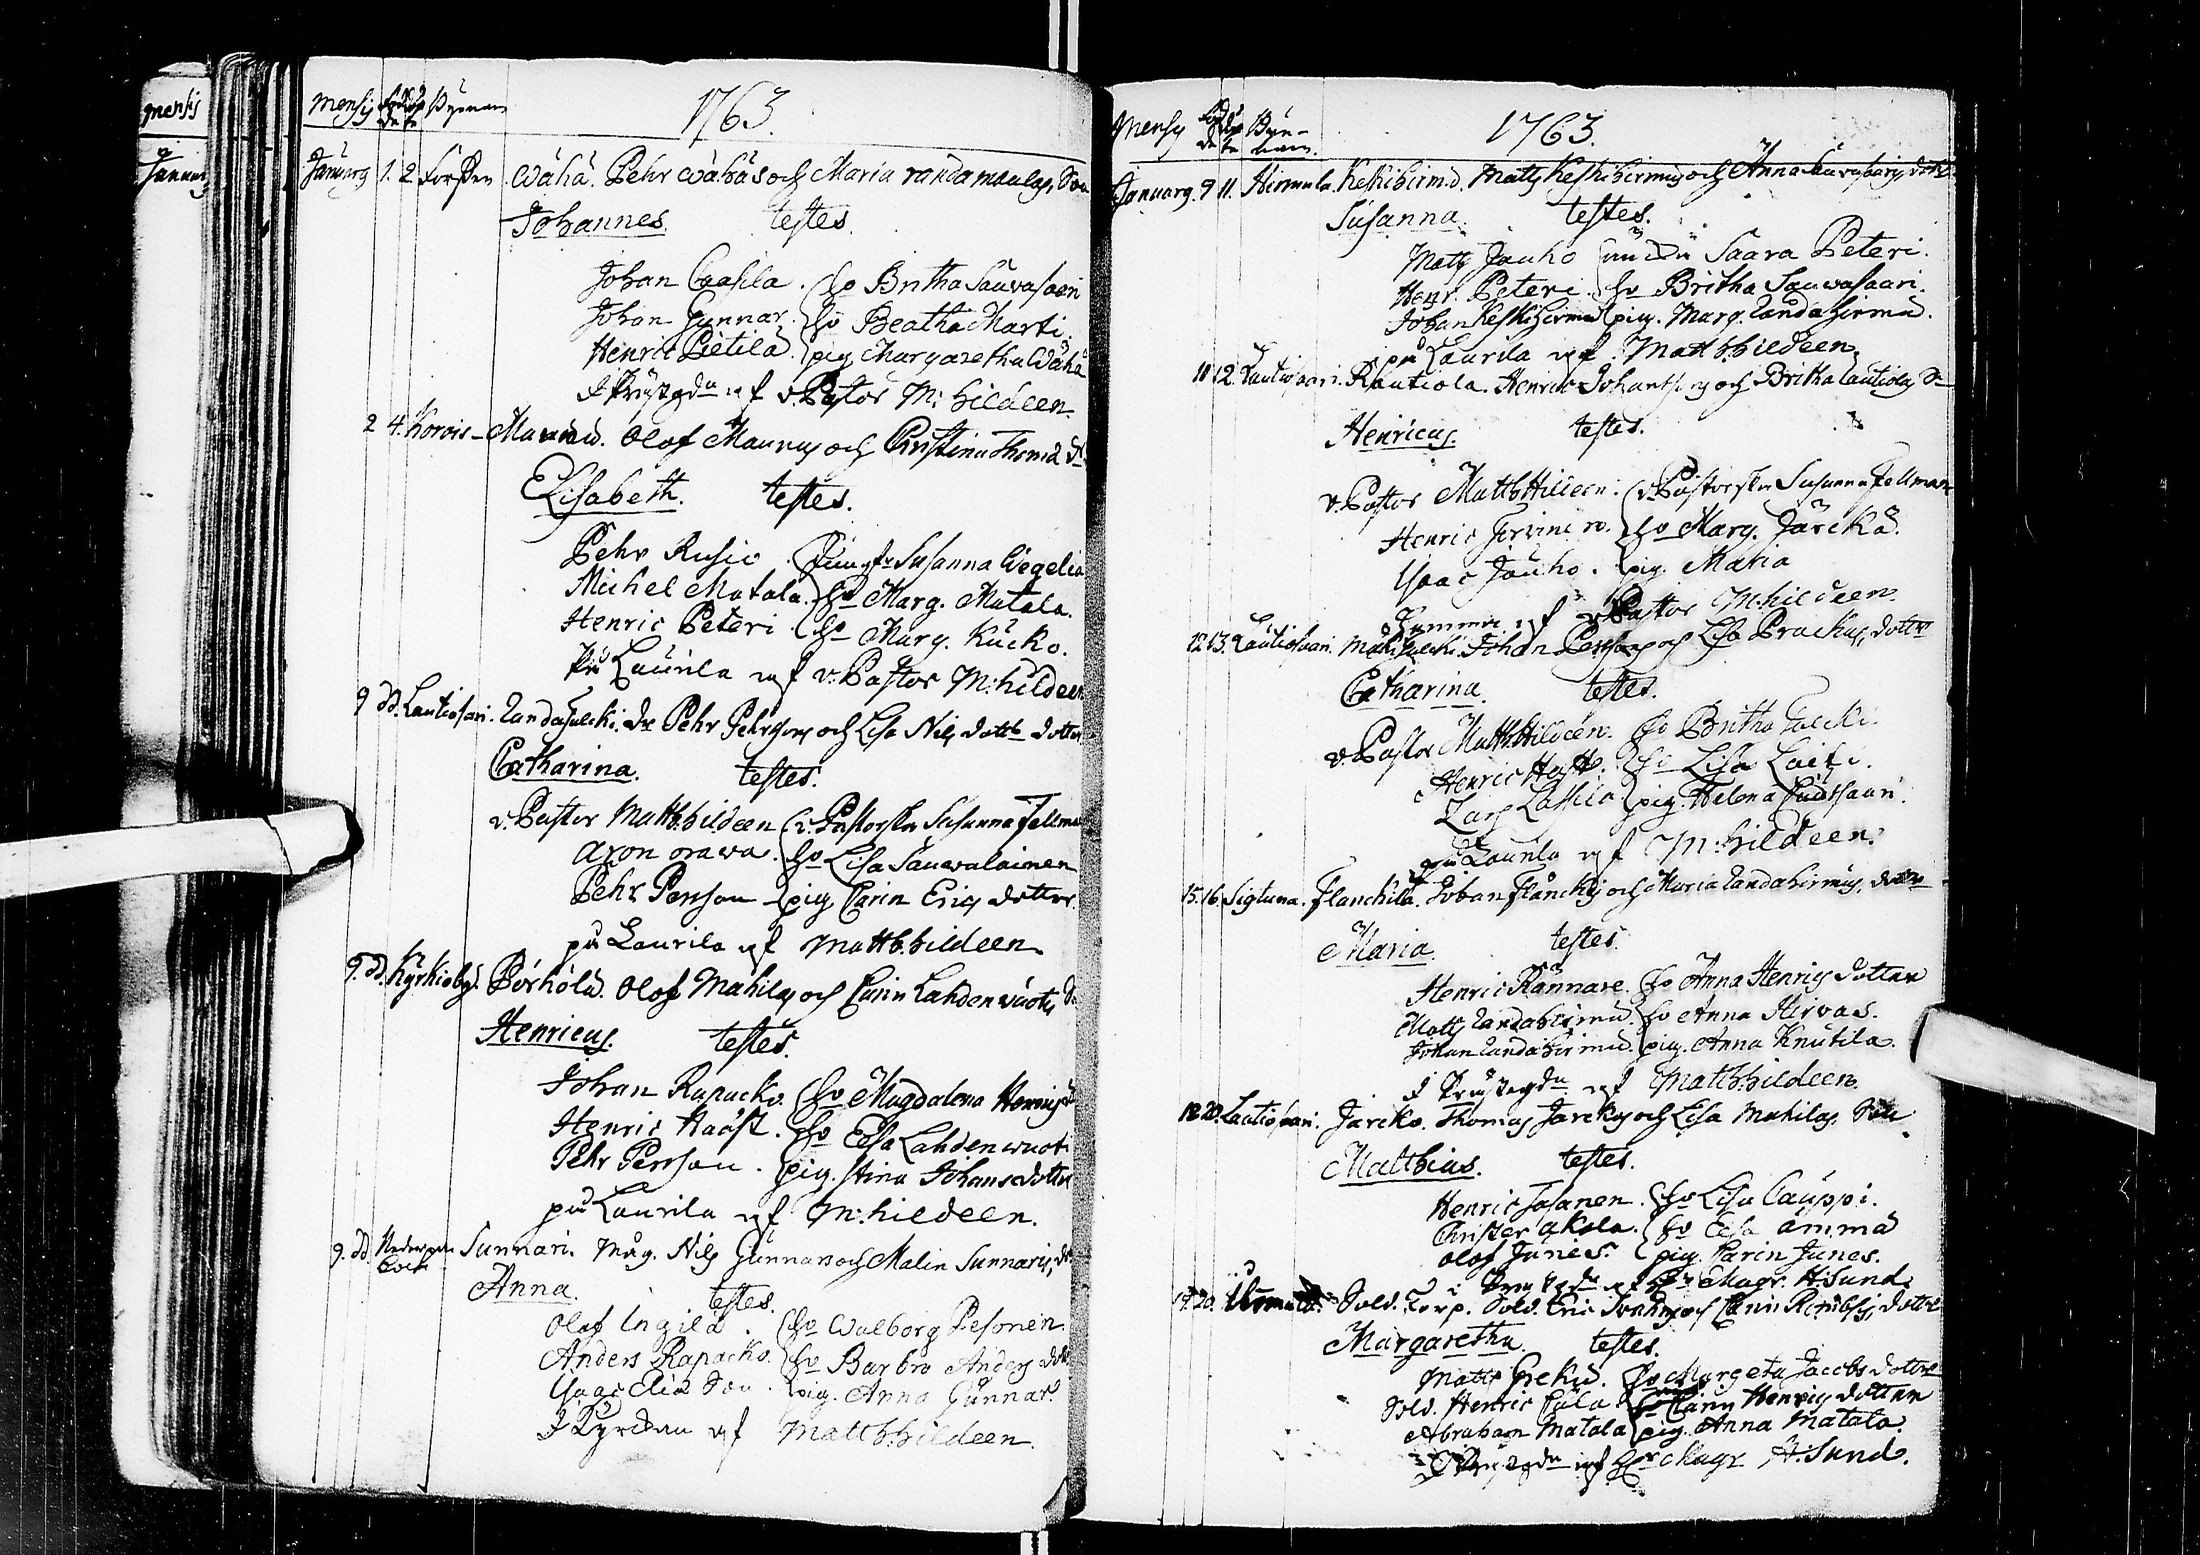 mensis
Januarij
Mensis Födde Döpte Byenam
1763.
Januarij 1. 2 Forsten Wähä. Pehr Wähäs och Maria randamaulas, Son
Johannes. testes.
Johan Caasila. hu Britha Sauwasaari
Johan Gunnar. hu Beatha Marti.
Henric Pietilä. pig Margaretha Wähä
I Prustgdn af v. Pastor M: hildeen.
2 4. Korois- Maunu. Olof Maunus och Christina Thoma dr
Elisabeth. testes.
Pehr Rusio. Jungfr Susanna Wegelia
Michel Matala. hu Marg. Matala.
Henric Peteri. hu Marg. Kucko.
på Laurila af v: Pastor M: hildeen
9 dd. Lautiosari. randajulcki. Dr Pehr Pehrsons och Lisa Nils dottr dotter
Catharina. testes.
v. Pastor Matth. hildeen v. Pastorskn Susanna Fellman
Aron orawa. hu Lisa Sauwalainen
Pehr Persson pig. Carin Erics dotter.
på Laurila af Matth. hildeen
9. dd. Kyrkioby. Pörhölä. Olof Mahilas och Carin Lahdenwuotis S
Henricus. testes.
Johan Rapacko. hu Magdalena Henrics
Henric Haöst. hu Elsa Lahdenwuoti
Pehr Persson. pig. Stina Johansdotter
på Laurila af M: hildeen.
9. dd. Sunnari. Måg. Nils Gunnars och Malin Sunnaris, dr
Anna. testes.
Olof Ingilä. hu Walborg Pesonen
Anders Rapacko. hu Barbro Anders dotr
Isaac Elia Son. pig. Anna Gunnars
I Kyrckan af Matth. hildeen.
Mensis Föd de Döp te Bye-nam.
1763.
Januarij. 9 11. Hirmula. Keskihirm. Matts Keskihirmus och Anna dotr
Susanna. testes.
Matts Jauho Saara Peteri.
Henr. Peteri. hu Britha Sauwasaari.
Johan Keskihirmu pig. Marg. randahirmu.
på Laurila af Matth. hildeen.
11 12. Lautiosaari. Rautiola. Henric Johanss och Britha rautiolas Sn
Henricus. testes.
v. Pastor Matth Hildeen. v. Pastorskn Susanna Fellman
Henric Jervine hu Marg. Järckä.
Isaac Jauho. pig. Maria
af v. Pastor M. hildeen.
12 13. Lautiosaari. Johan Perssons och Lisa Prackus, dotter
Catharina. testes.
v. Pastor Matth. Hildeen. hu Britha Julcki.
Henric Hast. hu Lisa Laiti.
Lars Lassila pig. Helena
på Laurila af M: hildeen.
15. 16. Sigtuna. Flanckilä. Johan Flanckis och Maria randahirmus, dotter
Maria. testes.
Henric Rännare. hu Anna Henrics dotter
Matts randahirmu. hu Anna Hirvas.
Johan randahirmu. pig. Anna Knutila.
I Prustegdn af Matth. hildeen.
18 20. Lautiosaari. Jarcko. Thomas Jarckos och Lisa Mahilas. Son
Matthias. testes.
Henric Sasanen. hu Lisa Cauppi.
Christer Akola. hu Elsa ämmä
Olof Junes. pig. Carin Junes.
I Prustegdn af Hr Magr. H: Sund.
19. 20. Sold. Torp. Sold. Eric och Carin dotter
Margaretha. testes.
Matts hu Margeta Jacobs dotter
Sold. Henric hu Carin Henrics dotter
Abraham Matala pig. Anna Matala.
I Prustgdn af Hr Magr H: Sund.